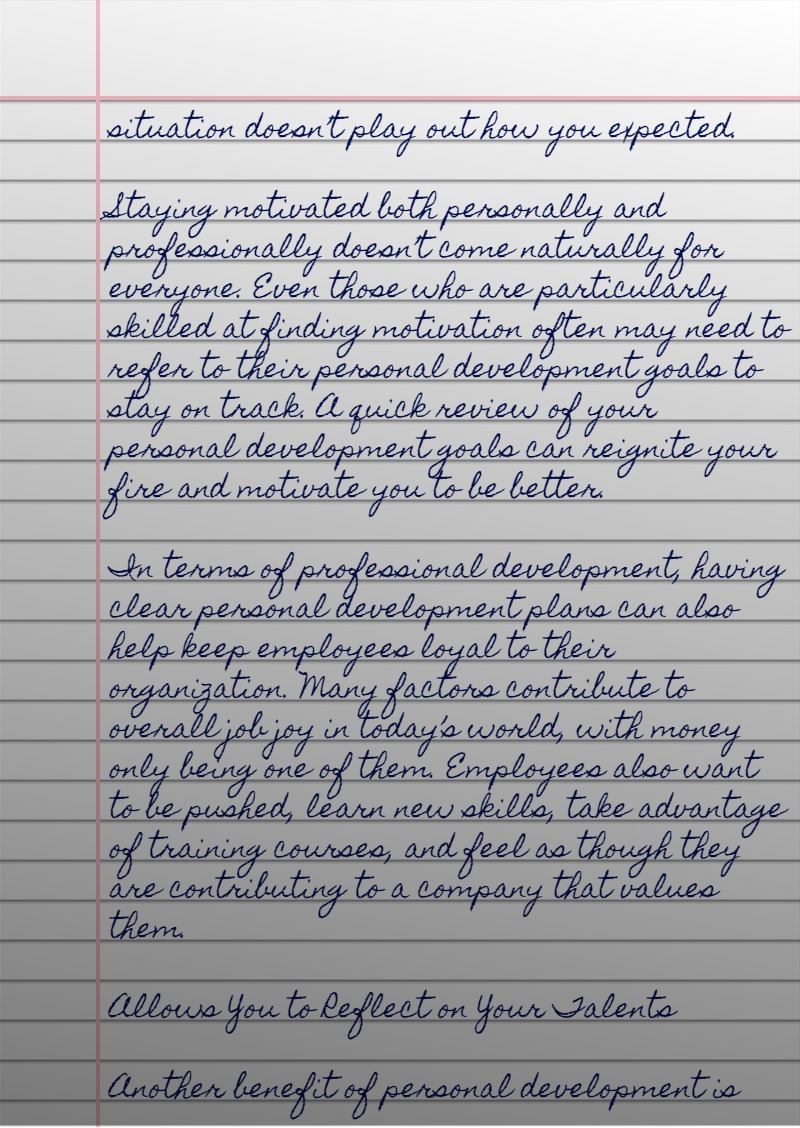 situation doesn't play out how you expected.
Staying motivated both personally and
professionally doesn't come naturally for
everyone. Even those who are particularly
skilled at finding motivation often may need to
refer to their personal development goals to
stay on track. A quick review of your
personal development goals can reignite your
fire and motivate you to be better.
In terms of professional development, having
clear personal development plans can also
help keep employees loyal to their
organization. Many factors contribute to
overall job joy in today's world, with money
only being one of them. Employees also want
to be pushed, learn new skills, take advantage
of training courses, and feel as though they
are contributing to a company that values
them.
Allows You to Reflect on Your Talents
Another benefit of personal development is